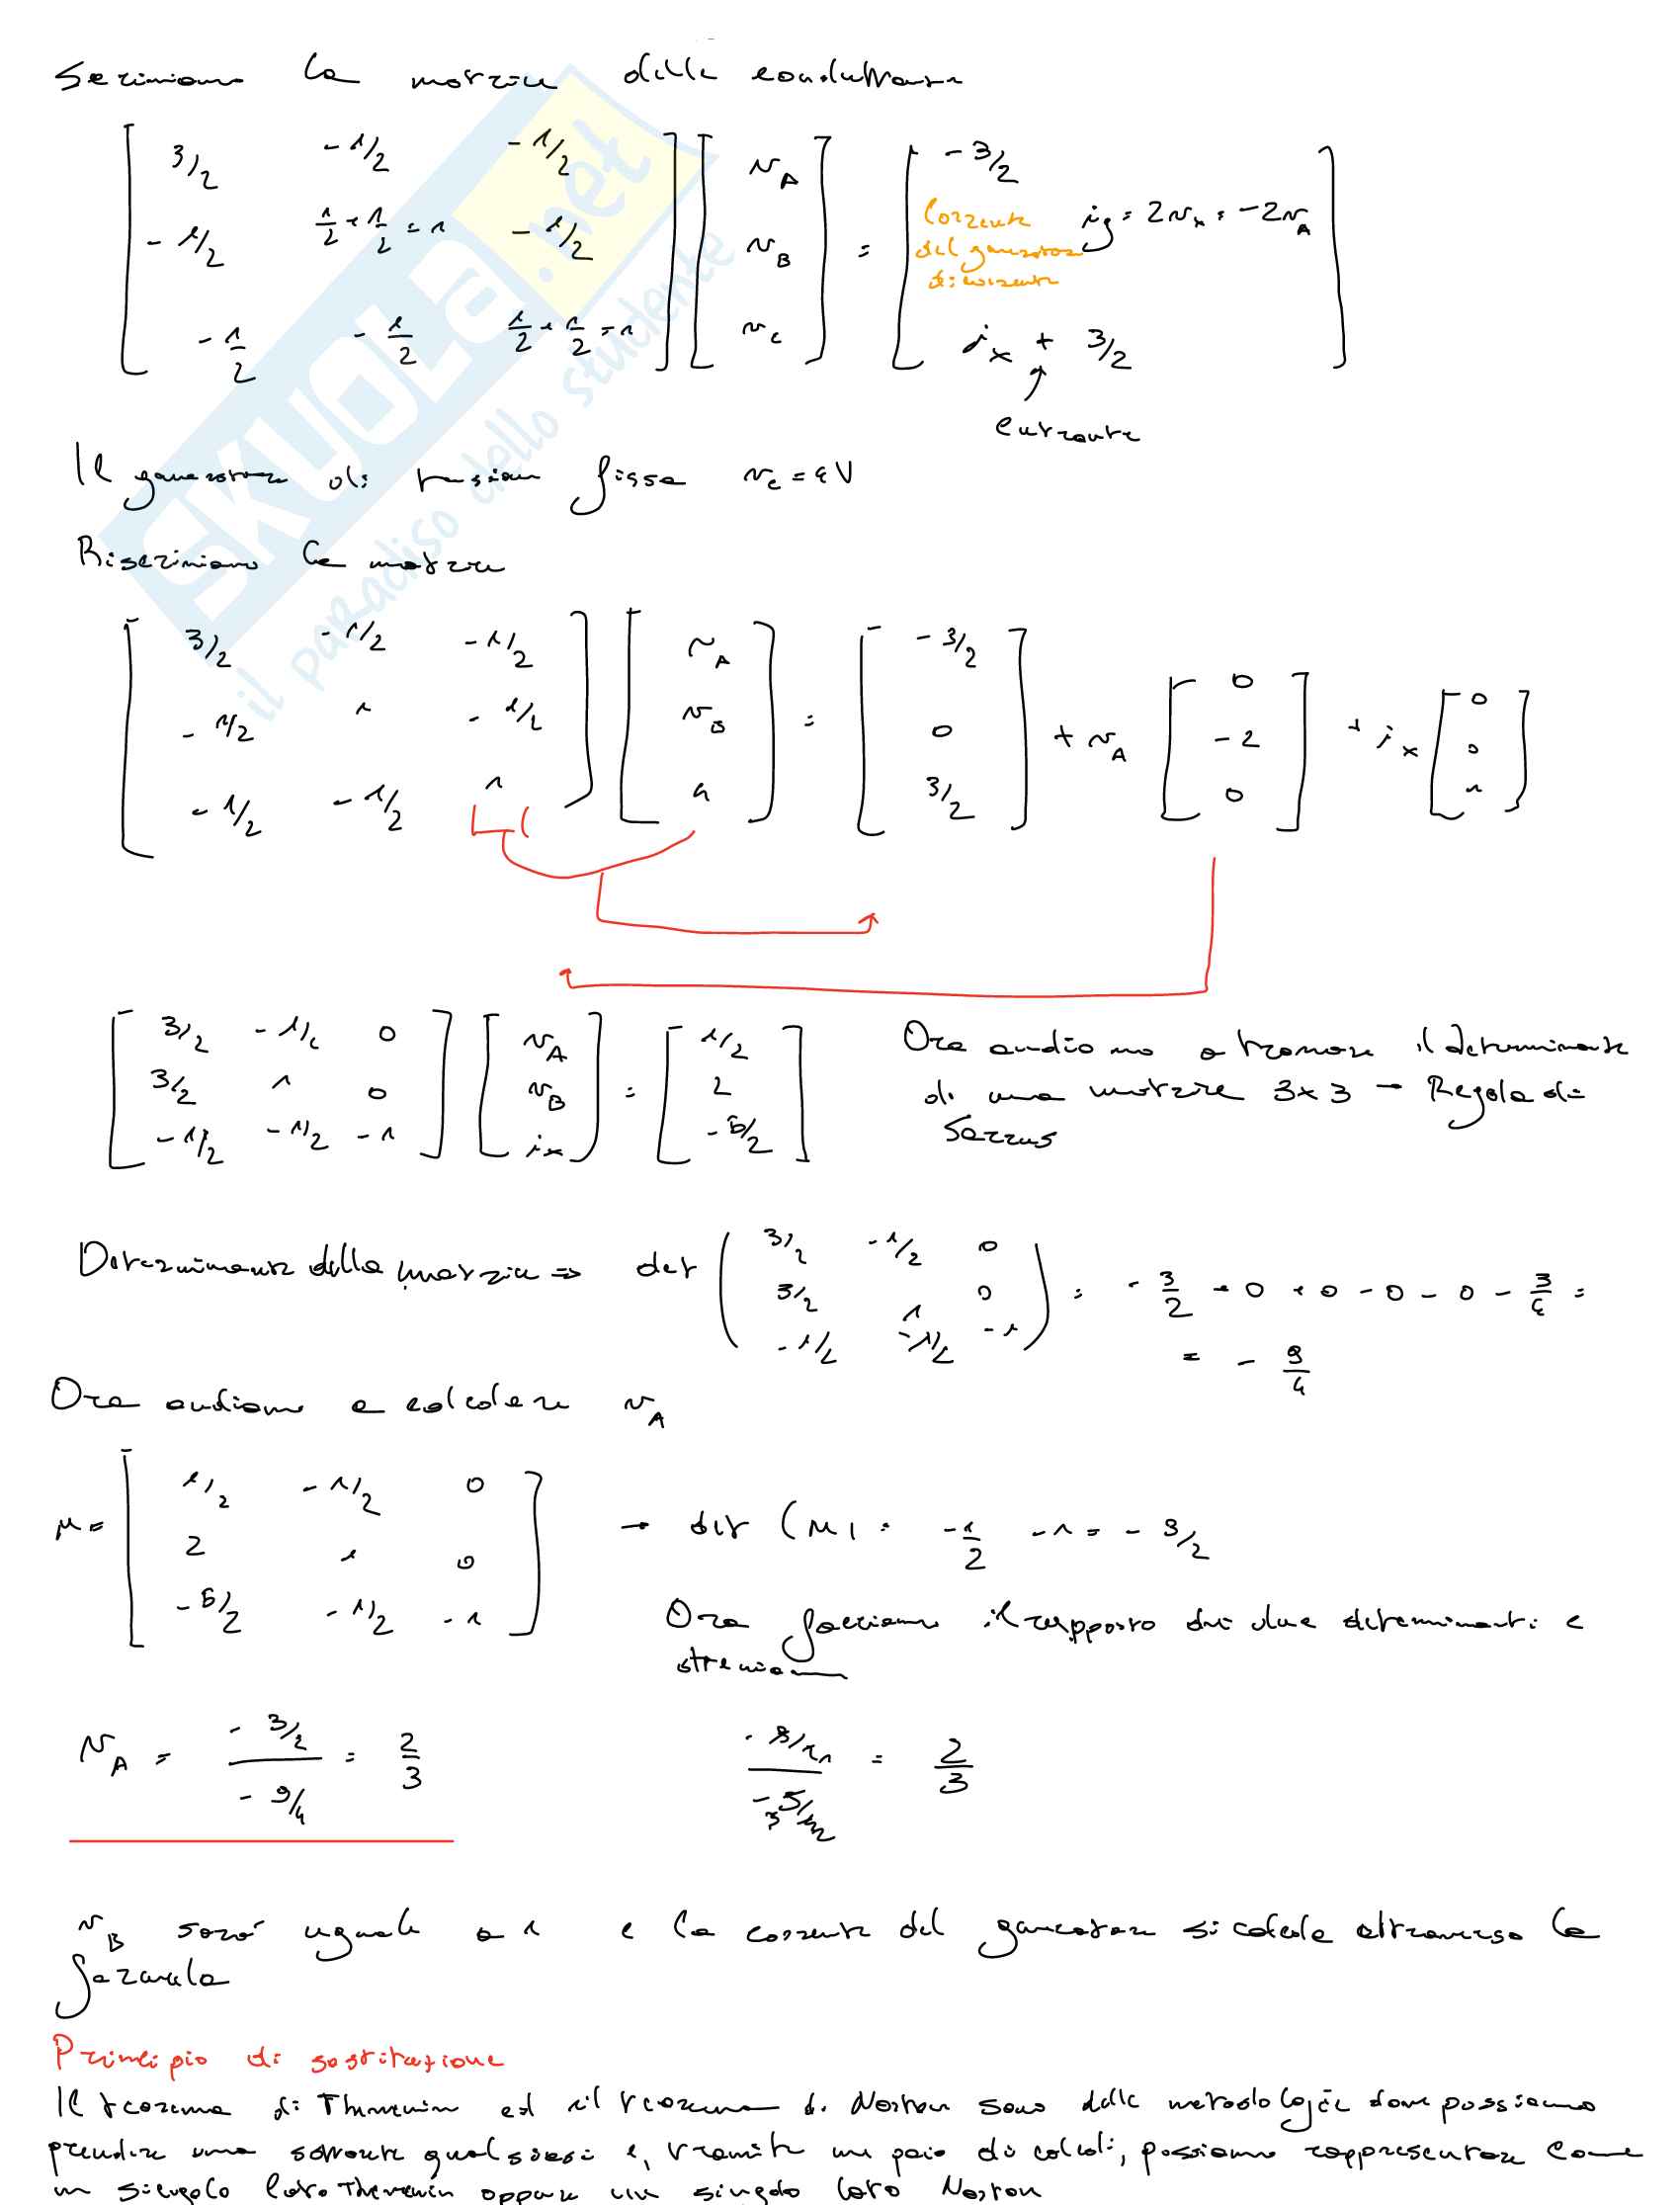 Scriviamo la matrice delle conduttanze
3/2 -1/2 -1/2
-1/2 1/2 + 1/2 = 1 -1/2
-1/2 -1/2 1/2 + 1/2 = 1
v_A
v_B
v_C
=
-3/2
Corrente del generatore di corrente
i_g = 2v_x = -2v_A
i_x + 3/2
entrante
Il generatore di tensione fissa v_C = 4V
Riscriviamo la matrice
3/2 -1/2 -1/2
-1/2 1 -1/2
-1/2 -1/2 1
v_A
v_B
4
=
-3/2
0
3/2
+ v_A
0
-2
0
+ i_x
0
0
1
3/2 -1/2 0
3/2 1 0
-1/2 -1/2 -1
v_A
v_B
i_x
=
1/2
2
-5/2
Ora andiamo a trovare il determinante
di una matrice 3x3 → Regola di
Sarrus
Determinante della matrice => det
3/2 -1/2 0
3/2 1 0
-1/2 -1/2 -1
= -3/2 + 0 + 0 - 0 - 0 - 3/4 =
= - 9/4
Ora andiamo a calcolare v_A
M =
1/2 -1/2 0
2 1 0
-5/2 -1/2 -1
→ det (M) = -1/2 - 1 = - 3/2
Ora facciamo il rapporto dei due determinanti e
otteniamo
v_A = -3/2 / -9/4 = 2/3
= 2/3
v_B sarà uguale a 1 e la corrente del generatore si calcola attraverso la
formula
Principio di sostituzione
Il teorema di Thevenin ed il teorema di Norton sono delle metodologie dove possiamo
prendere una sorgente qualsiasi e, tramite un paio di calcoli, possiamo rappresentare come
un singolo lato Thevenin oppure un singolo lato Norton
SKUOLA.net
il paradiso dello studente